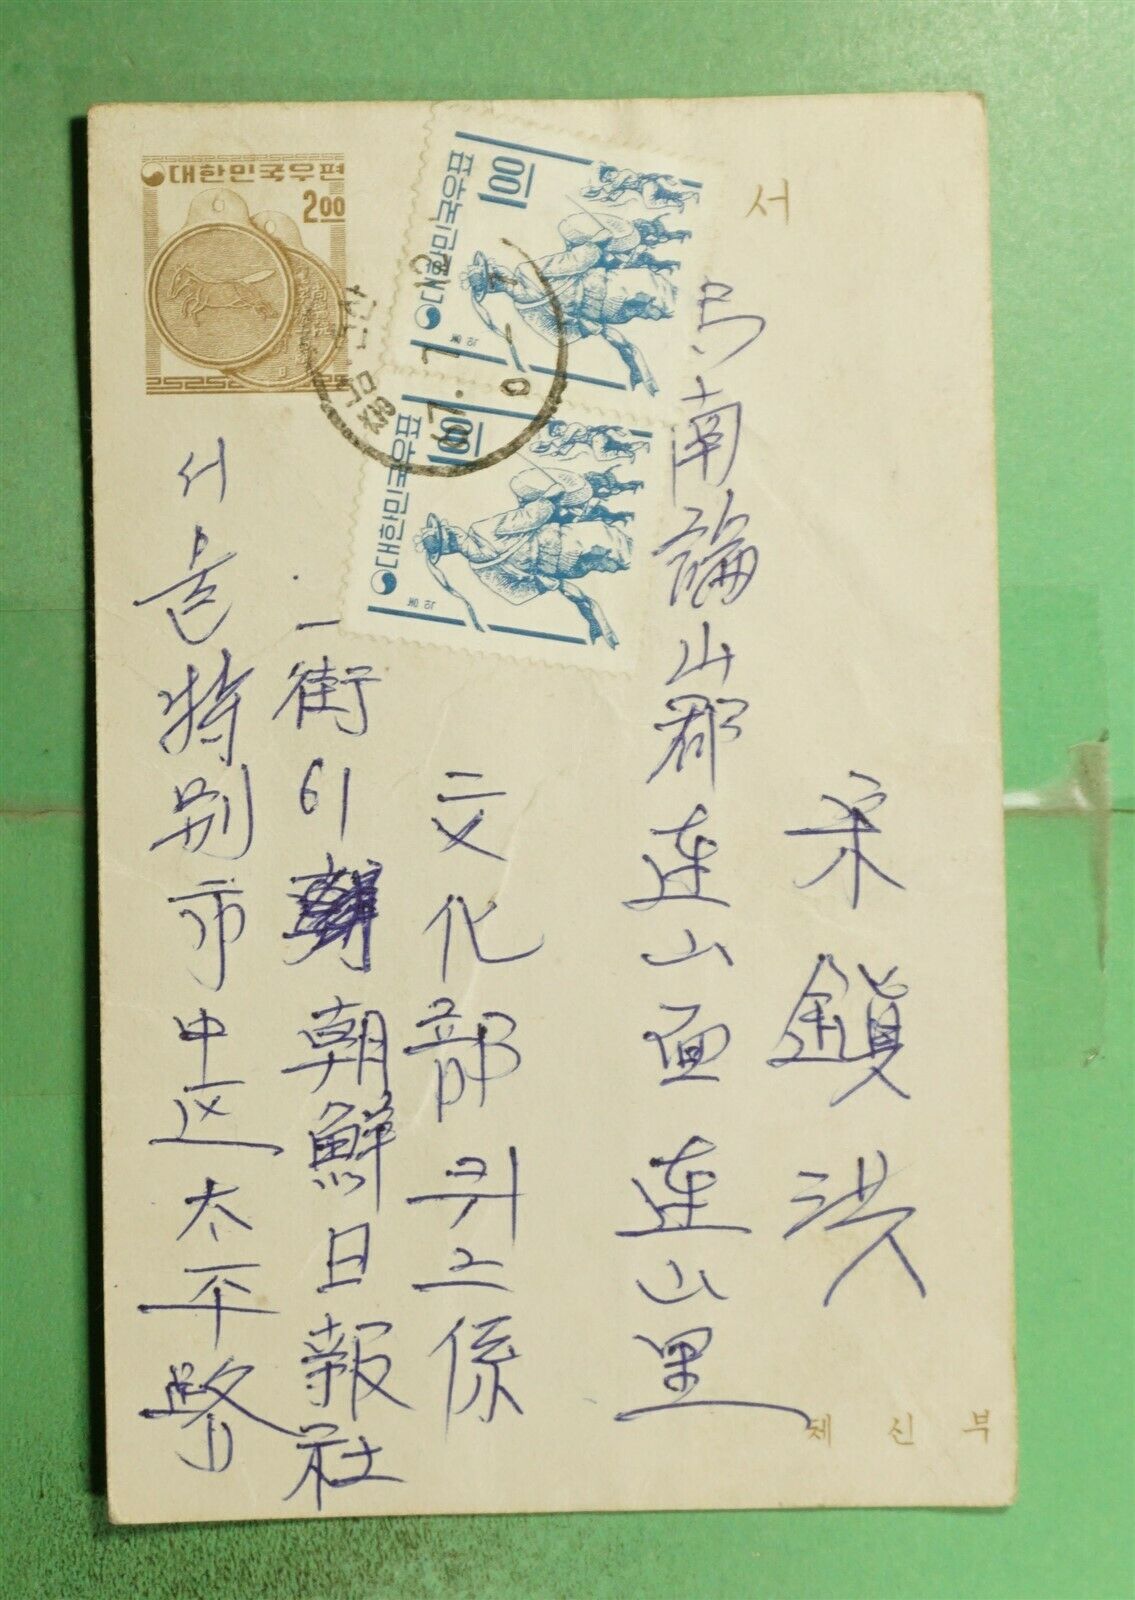 대한민국우편
2.00
대한민국우표
1.00
대한민국우표
1.00
서
서울特別市中区太平路
一街61 朝鮮日報社
文化部 퀴즈係
忠南論山郡連山面連山里
宋鎭洪
체신부